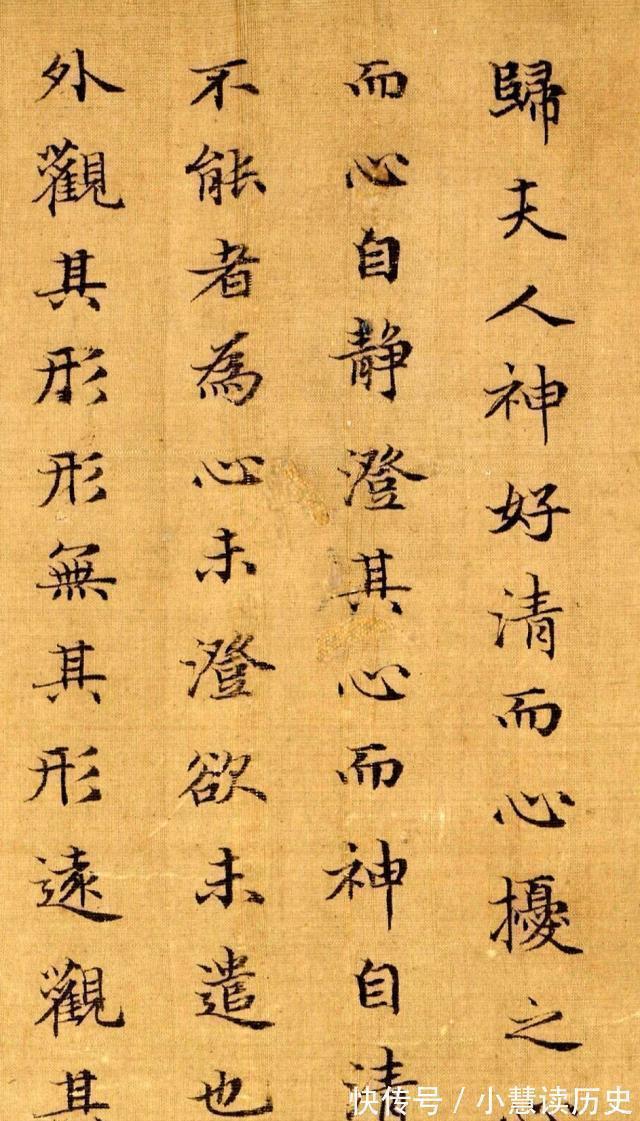 歸夫人神好清而心擾之
而心自靜澄其心而神自清
不能者為心未澄欲未遣也
外觀其形形無其形遠觀其
快传号/小慧读历史